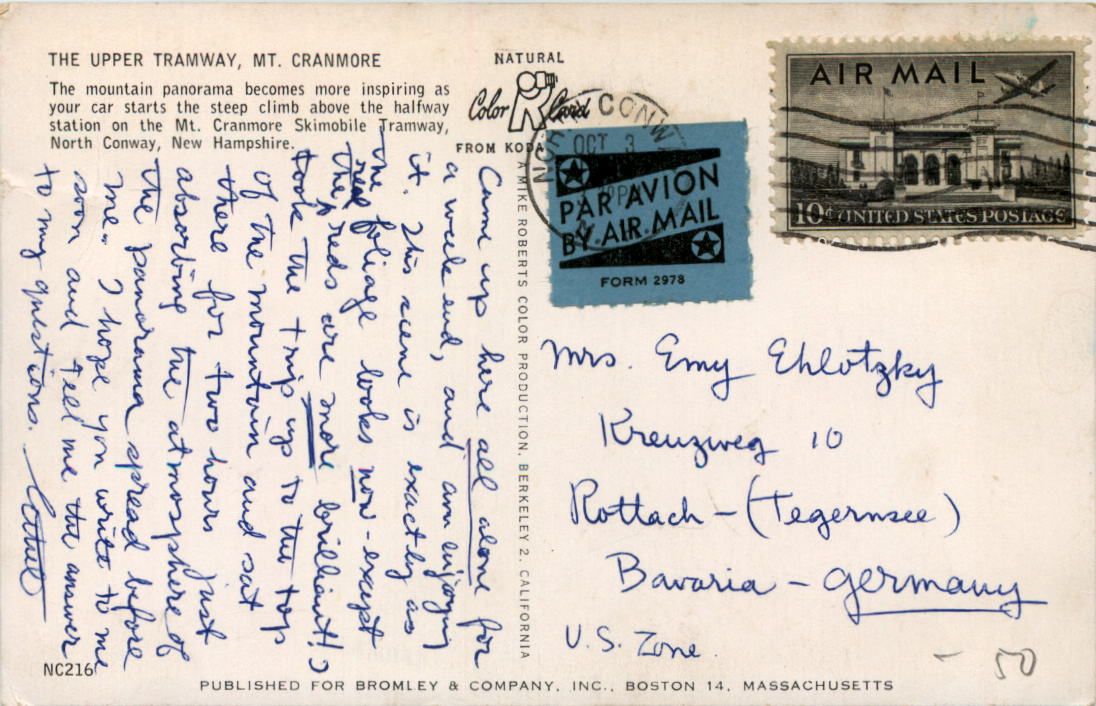 THE UPPER TRAMWAY, MT. CRANMORE
The mountain panorama becomes more inspiring as
your car starts the steep climb above the halfway
station on the Mt. Cranmore Skimobile Tramway,
North Conway, New Hampshire.
NATURAL
Color Card
FROM KODA
OCT 3
AIR MAIL
10¢ UNITED STATES POSTAGE
PAR AVION
BY AIR MAIL
FORM 2978
A MIKE ROBERTS COLOR PRODUCTION, BERKELEY 2, CALIFORNIA
Came up here all alone for
a weekend, and am enjoying
it. This scene is exactly as
the foliage looks now - except
the reds are more brilliant! I
took the trip up to the top
of the mountain and sat
there for two hours just
absorbing the atmosphere of
the panorama spread before
me. I hope you write to me
soon and tell me the answer
to my questions.
Mrs. Emy Ehlotzky
Kreuzweg 10
Rottach - (Tegernsee)
Bavaria - Germany
U.S. Zone.
- 50
NC216
PUBLISHED FOR BROMLEY & COMPANY, INC., BOSTON 14, MASSACHUSETTS